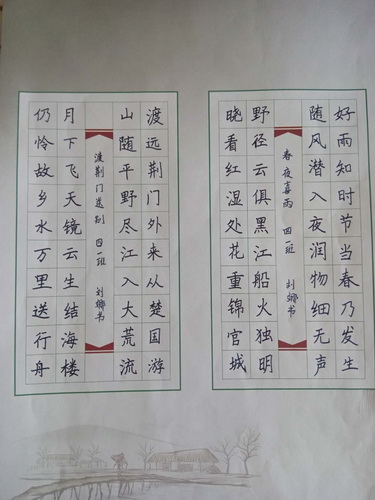 好雨知时节当春乃发生
随风潜入夜润物细无声
春夜喜雨 四一班 刘 书
野径云俱黑江船火独明
晓看红湿处花重锦官城
渡远荆门外来从楚国游
山随平野尽江入大荒流
渡荆门送别 四一班 刘 书
月下飞天镜云生结海楼
仍怜故乡水万里送行舟